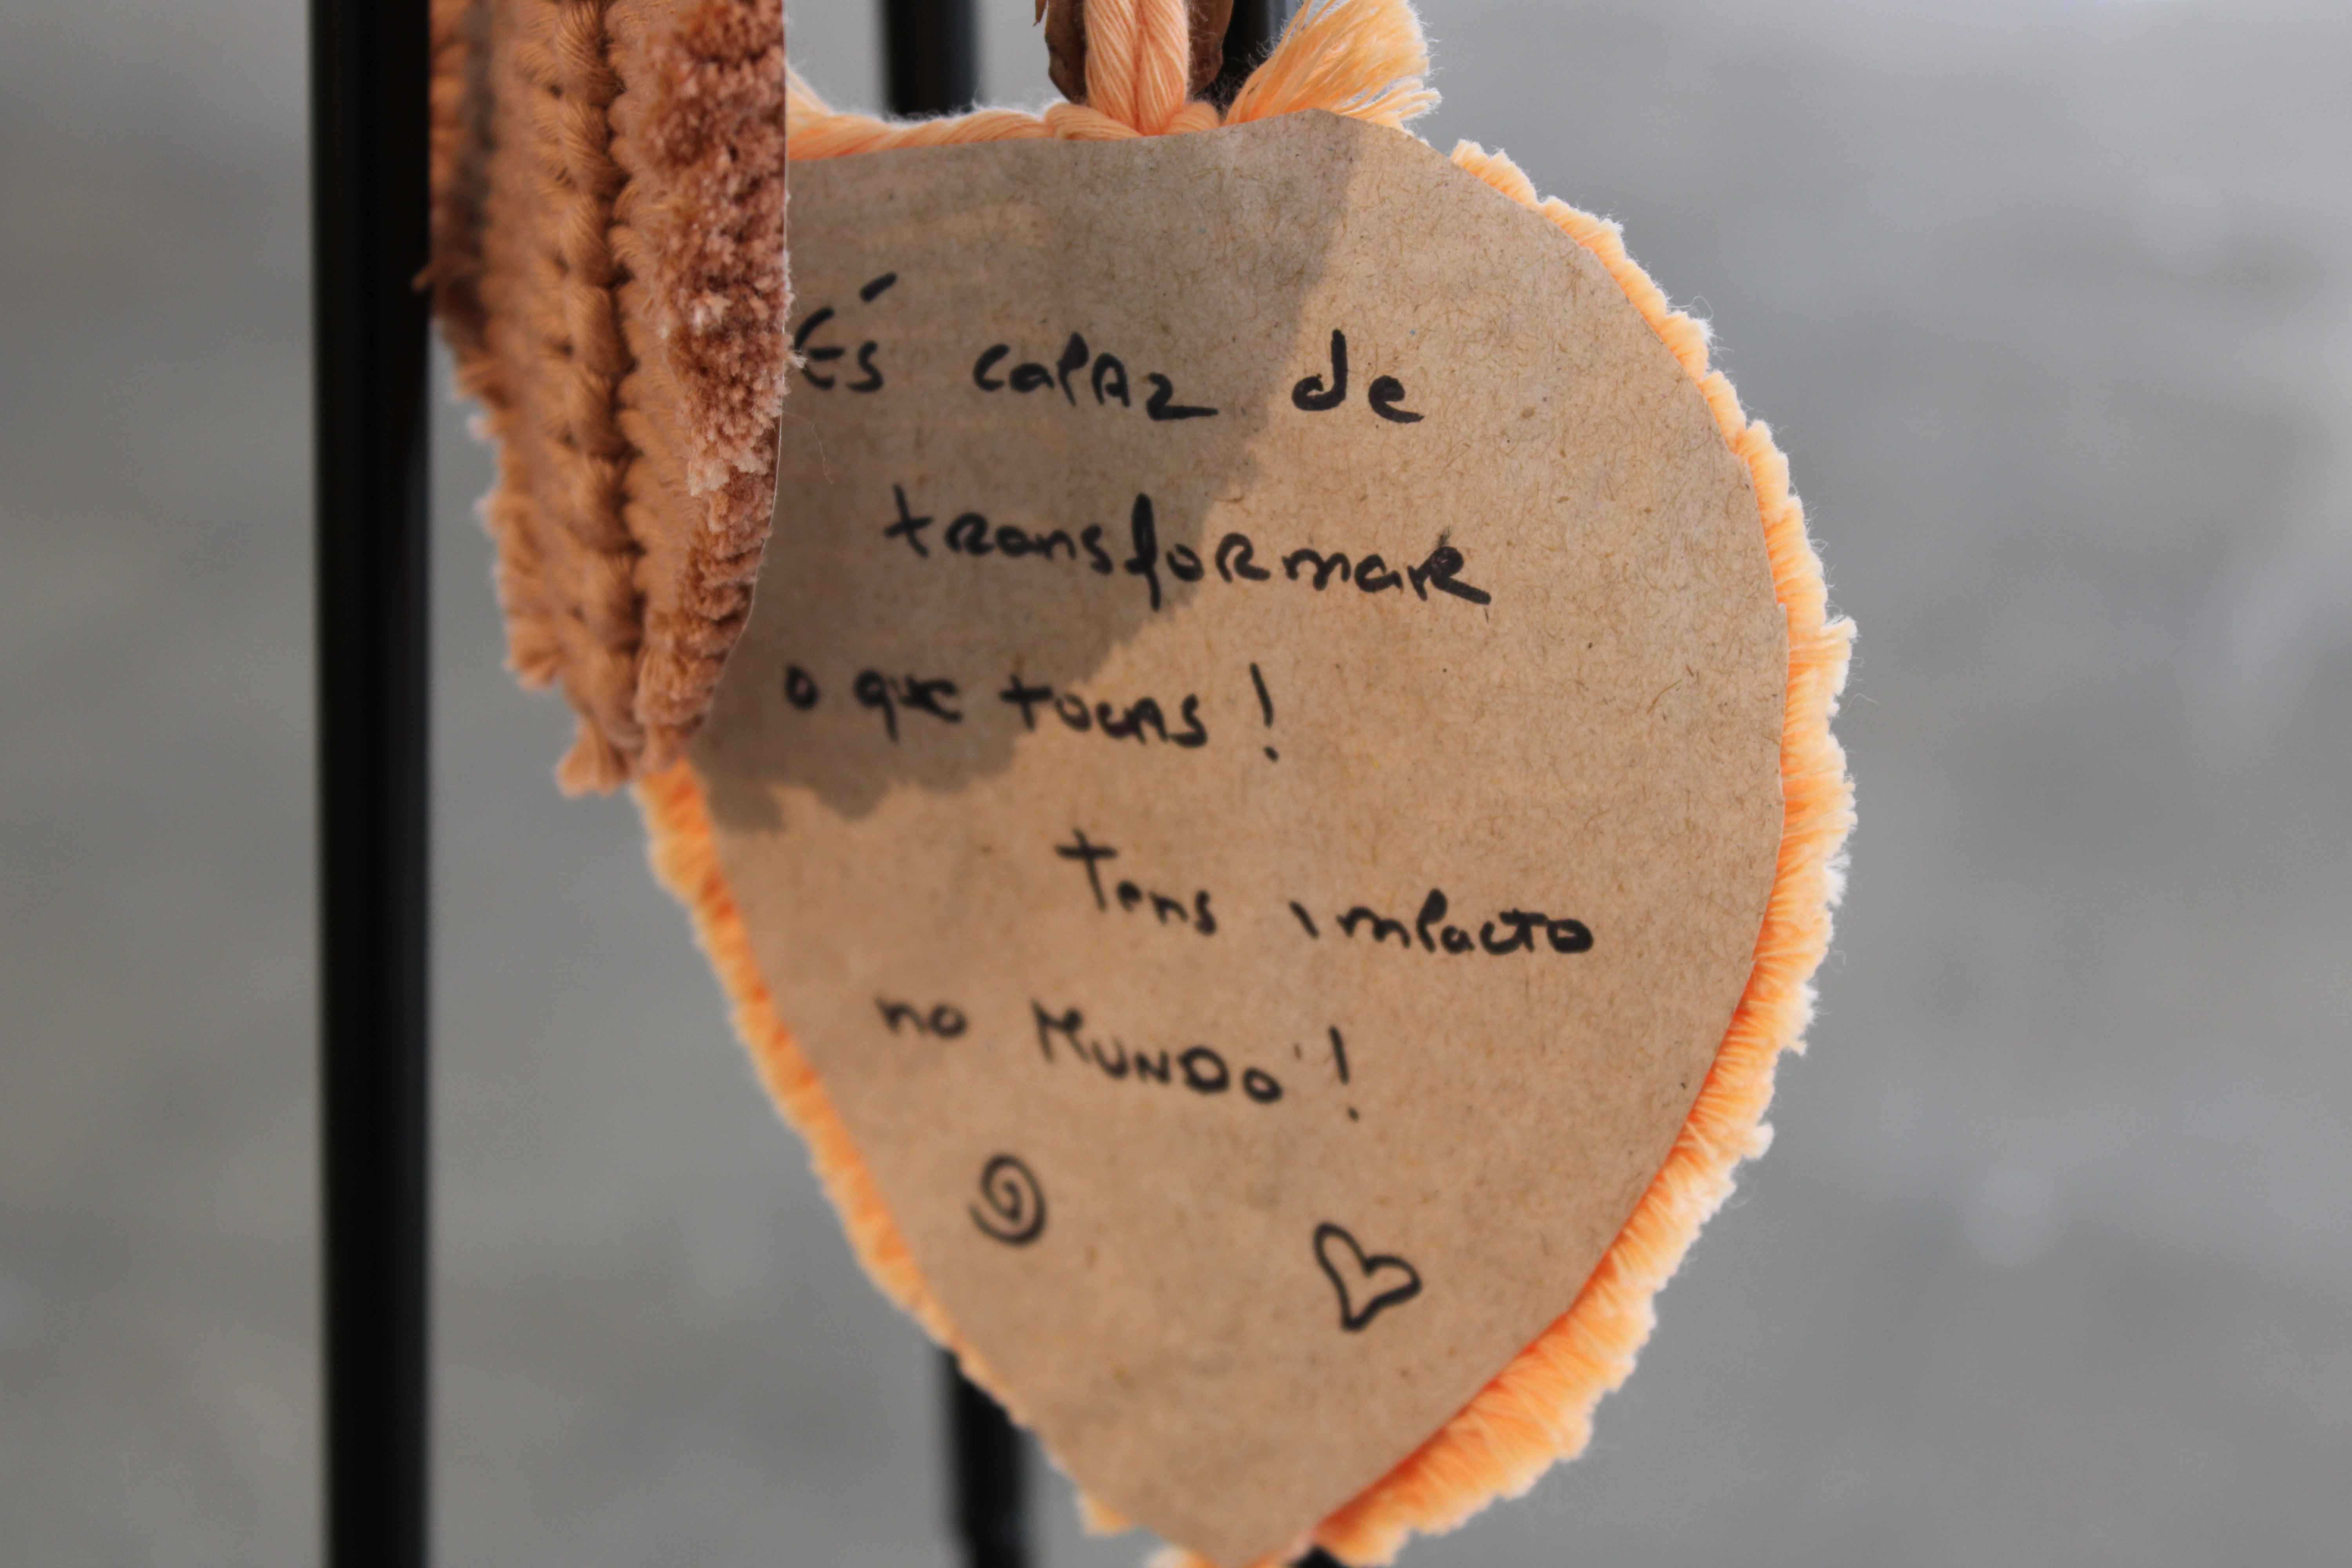 És capaz de
transformar
o que tocas!
Tens impacto
no MUNDO!